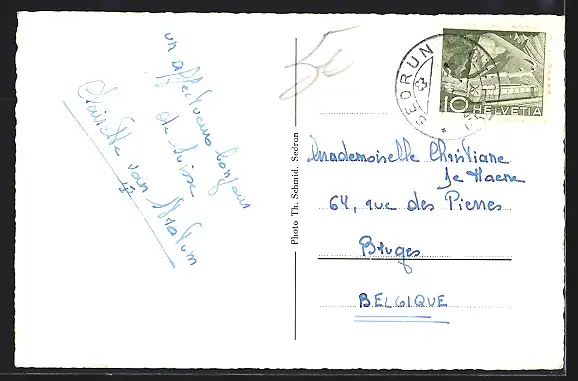 un affectueux bonjour
de Suisse
Clairette van
Photo Th. Schmid, Sedrun
SEDRUN
10 HELVETIA
Mademoiselle Christiane
De Haene
64, rue des Pierres
Bruges
BELGIQUE